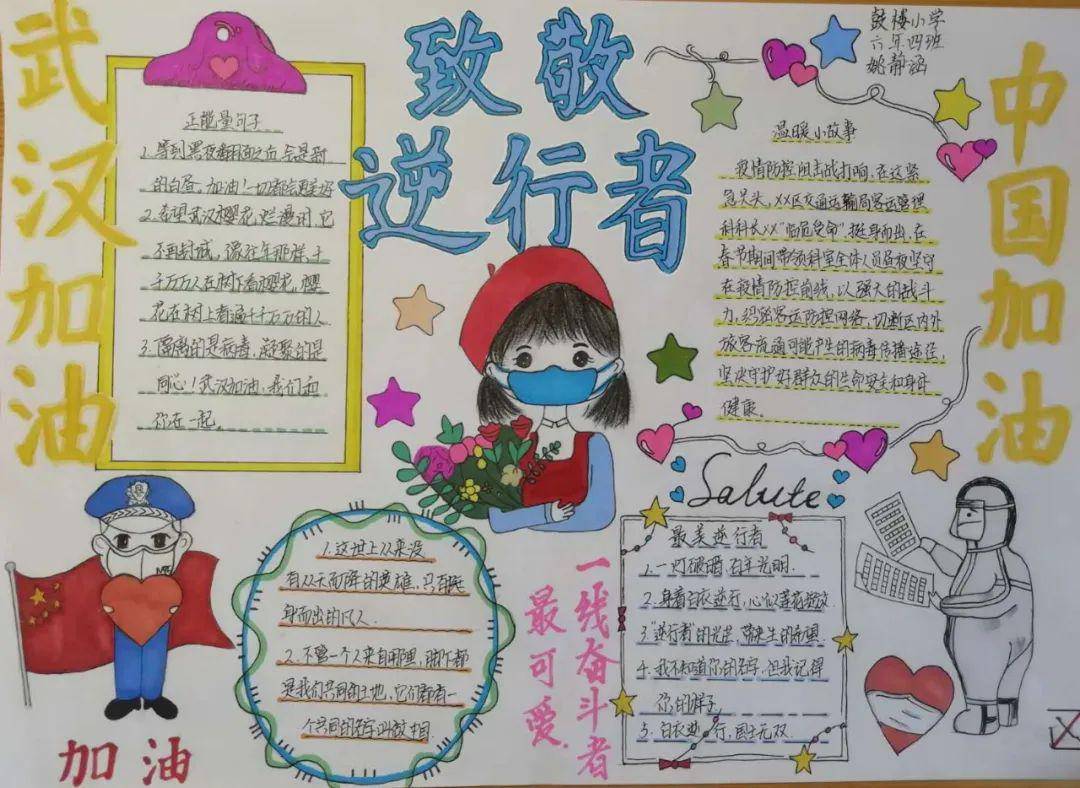 武汉加油
致敬
逆行者
中国加油
鼓楼小学
六年四班
姚静涵
正能量句子
1.等到黑夜翻面之后,会是新
的白昼,加油!一切都会更美好
2.希望武汉樱花烂漫时,它
不再封城,像往年那样,千
千万万人在树下看樱花,樱
花在树上看遍千千万万的人
3.隔离的是病毒,凝聚的是
同心!武汉加油,我们和
你在一起。
温暖小故事
疫情防控阻击战打响,在这紧
急关头,XX区交通运输局客运管理
科科长XX"临危受命"挺身而出,在
春节期间带领科室全体人员昼夜坚守
在疫情防控前线,以强大的战斗
力,织密客运防控网络,切断区内外
旅客流通可能产生的病毒传播途径,
坚决守护好群众的生命安全和身体
健康。
加油
1.这世上从来没
有从天而降的英雄,只有挺
身而出的凡人.
2.不管一个人来自哪里,脚下都
是我们共同的土地,它们都有一
个共同的名字叫
一线奋斗者
最可爱.
Salute
最美逆行者
1.一灯破暗,百年光明.
2.身着白衣逆行,心似莲花绽放
3."逆行者"的光芒,带来生的希望
4.我不知道你的名字,但我记得
你的样子,
5.白衣逆行,国士无双.